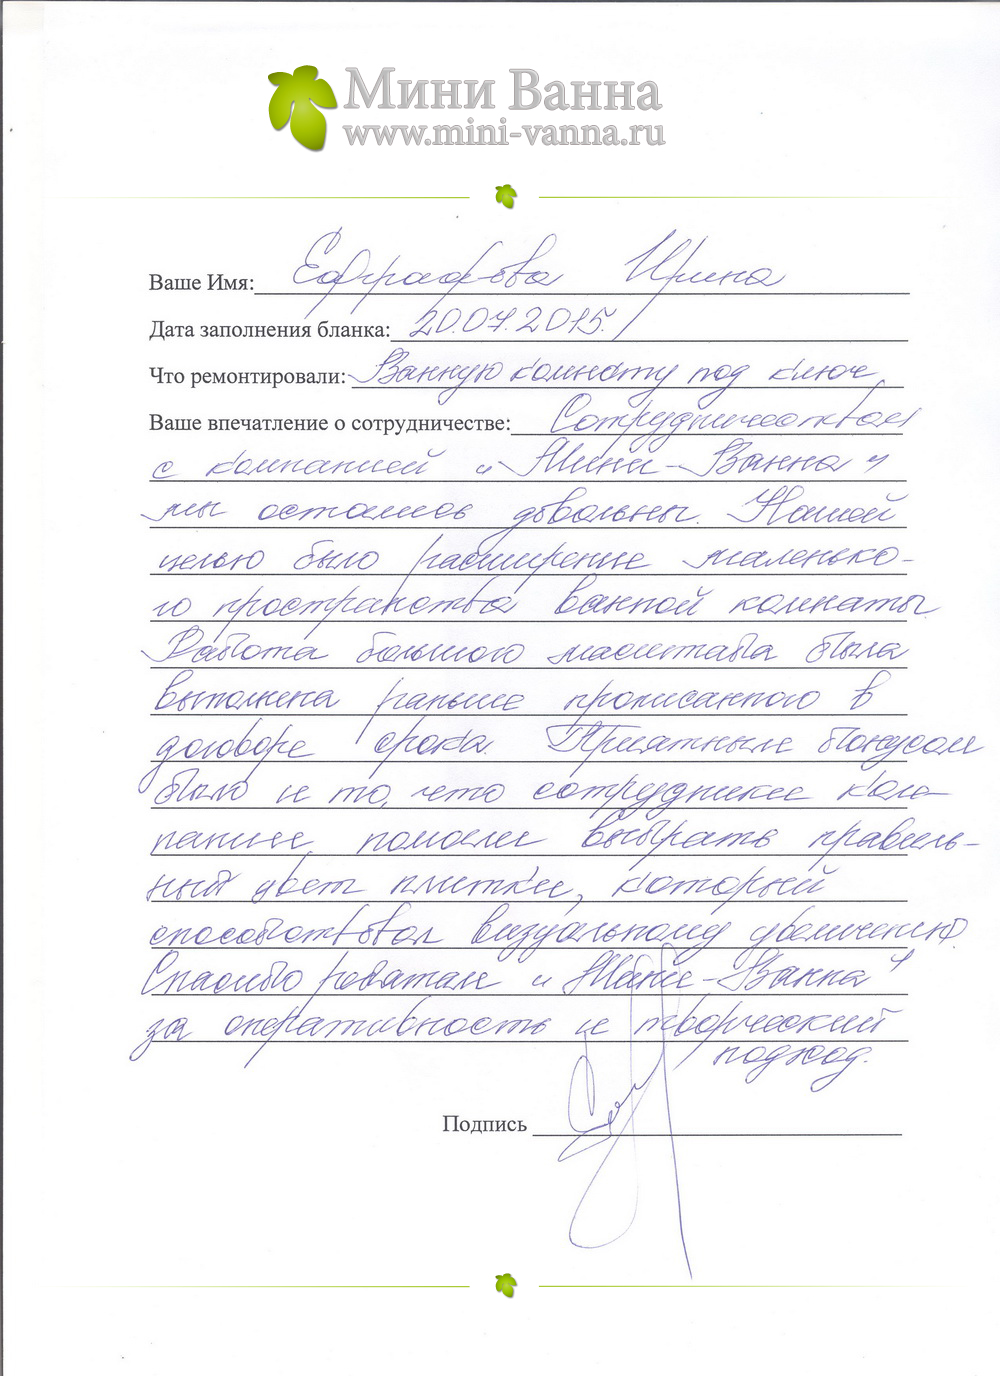 Мини Ванна
www.mini-vanna.ru
Ваше Имя: Ефрафова Ирина
Дата заполнения бланка: 20.07.2015.
Что ремонтировали: Ванную комнату под ключ
Ваше впечатление о сотрудничестве: Сотрудничеством
с компанией "Мини-Ванна"
мы остались довольны. Нашей
целью было расширение маленько-
го пространства ванной комнаты.
Работа большого масштаба была
выполнена раньше прописанного в
договоре срока. Приятным бонусом
было и то, что сотрудники ком-
пании помогли выбрать правиль-
ный цвет плитки, который
способствовал визуальному увеличению.
Спасибо ребятам "Мини-Ванна"
за оперативность и творческий
подход.
Подпись